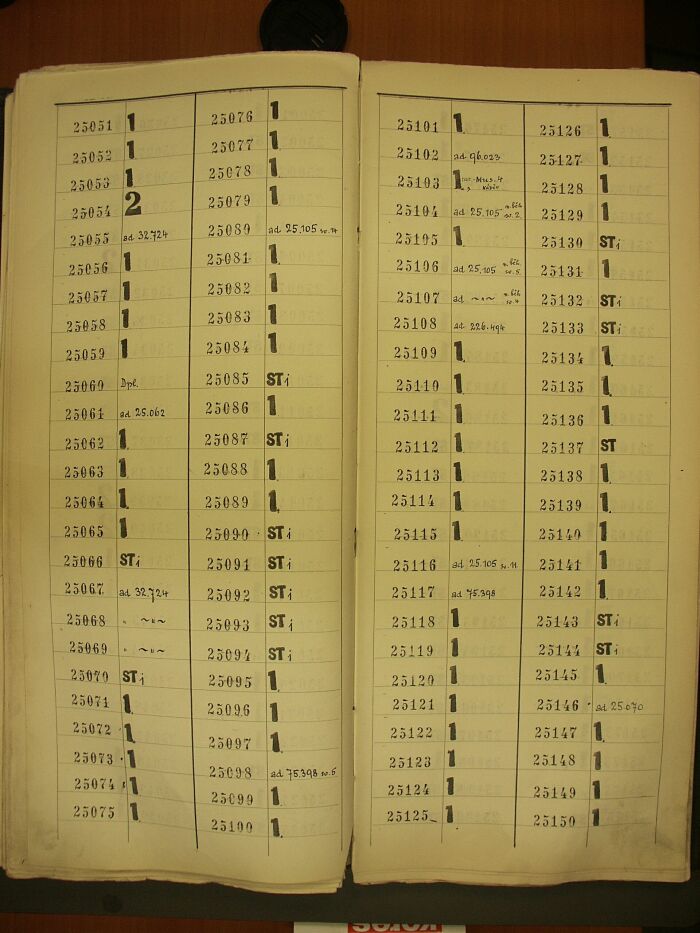 25051 1
25052 1
25053 1
25054 2
25055 ad 32.724
25056 1
25057 1
25058 1
25059 1
25060 Dpl.
25061 ad 25.062
25062 1
25063 1
25064 1
25065 1
25066 STi
25067 ad 32.724
25068 " ~"~
25069 " ~"~
25070 STi
25071 1
25072 1
25073 1
25074 1
25075 1
25076 1
25077 1
25078 1
25079 1
25080 ad 25.105
25081 1
25082 1
25083 1
25084 1
25085 STi
25086 1
25087 STi
25088 1
25089 1
25090 STi
25091 STi
25092 STi
25093 STi
25094 STi
25095 1
25096 1
25097 1
25098 ad 75.398
25099 1
25100 1
25101 1
25102 ad 96.023
25103 1
25104 ad 25.105
25105 1
25106 ad 25.105
25107 ad ~"~
25108 ad 226.494
25109 1
25110 1
25111 1
25112 1
25113 1
25114 1
25115 1
25116 ad 25.105
25117 ad 75.398
25118 1
25119 1
25120 1
25121 1
25122 1
25123 1
25124 1
25125 1
25126 1
25127 1
25128 1
25129 1
25130 STi
25131 1
25132 STi
25133 STi
25134 1
25135 1
25136 1
25137 ST
25138 1
25139 1
25140 1
25141 1
25142 1
25143 STi
25144 STi
25145 1
25146 ad 25.070
25147 1
25148 1
25149 1
25150 1